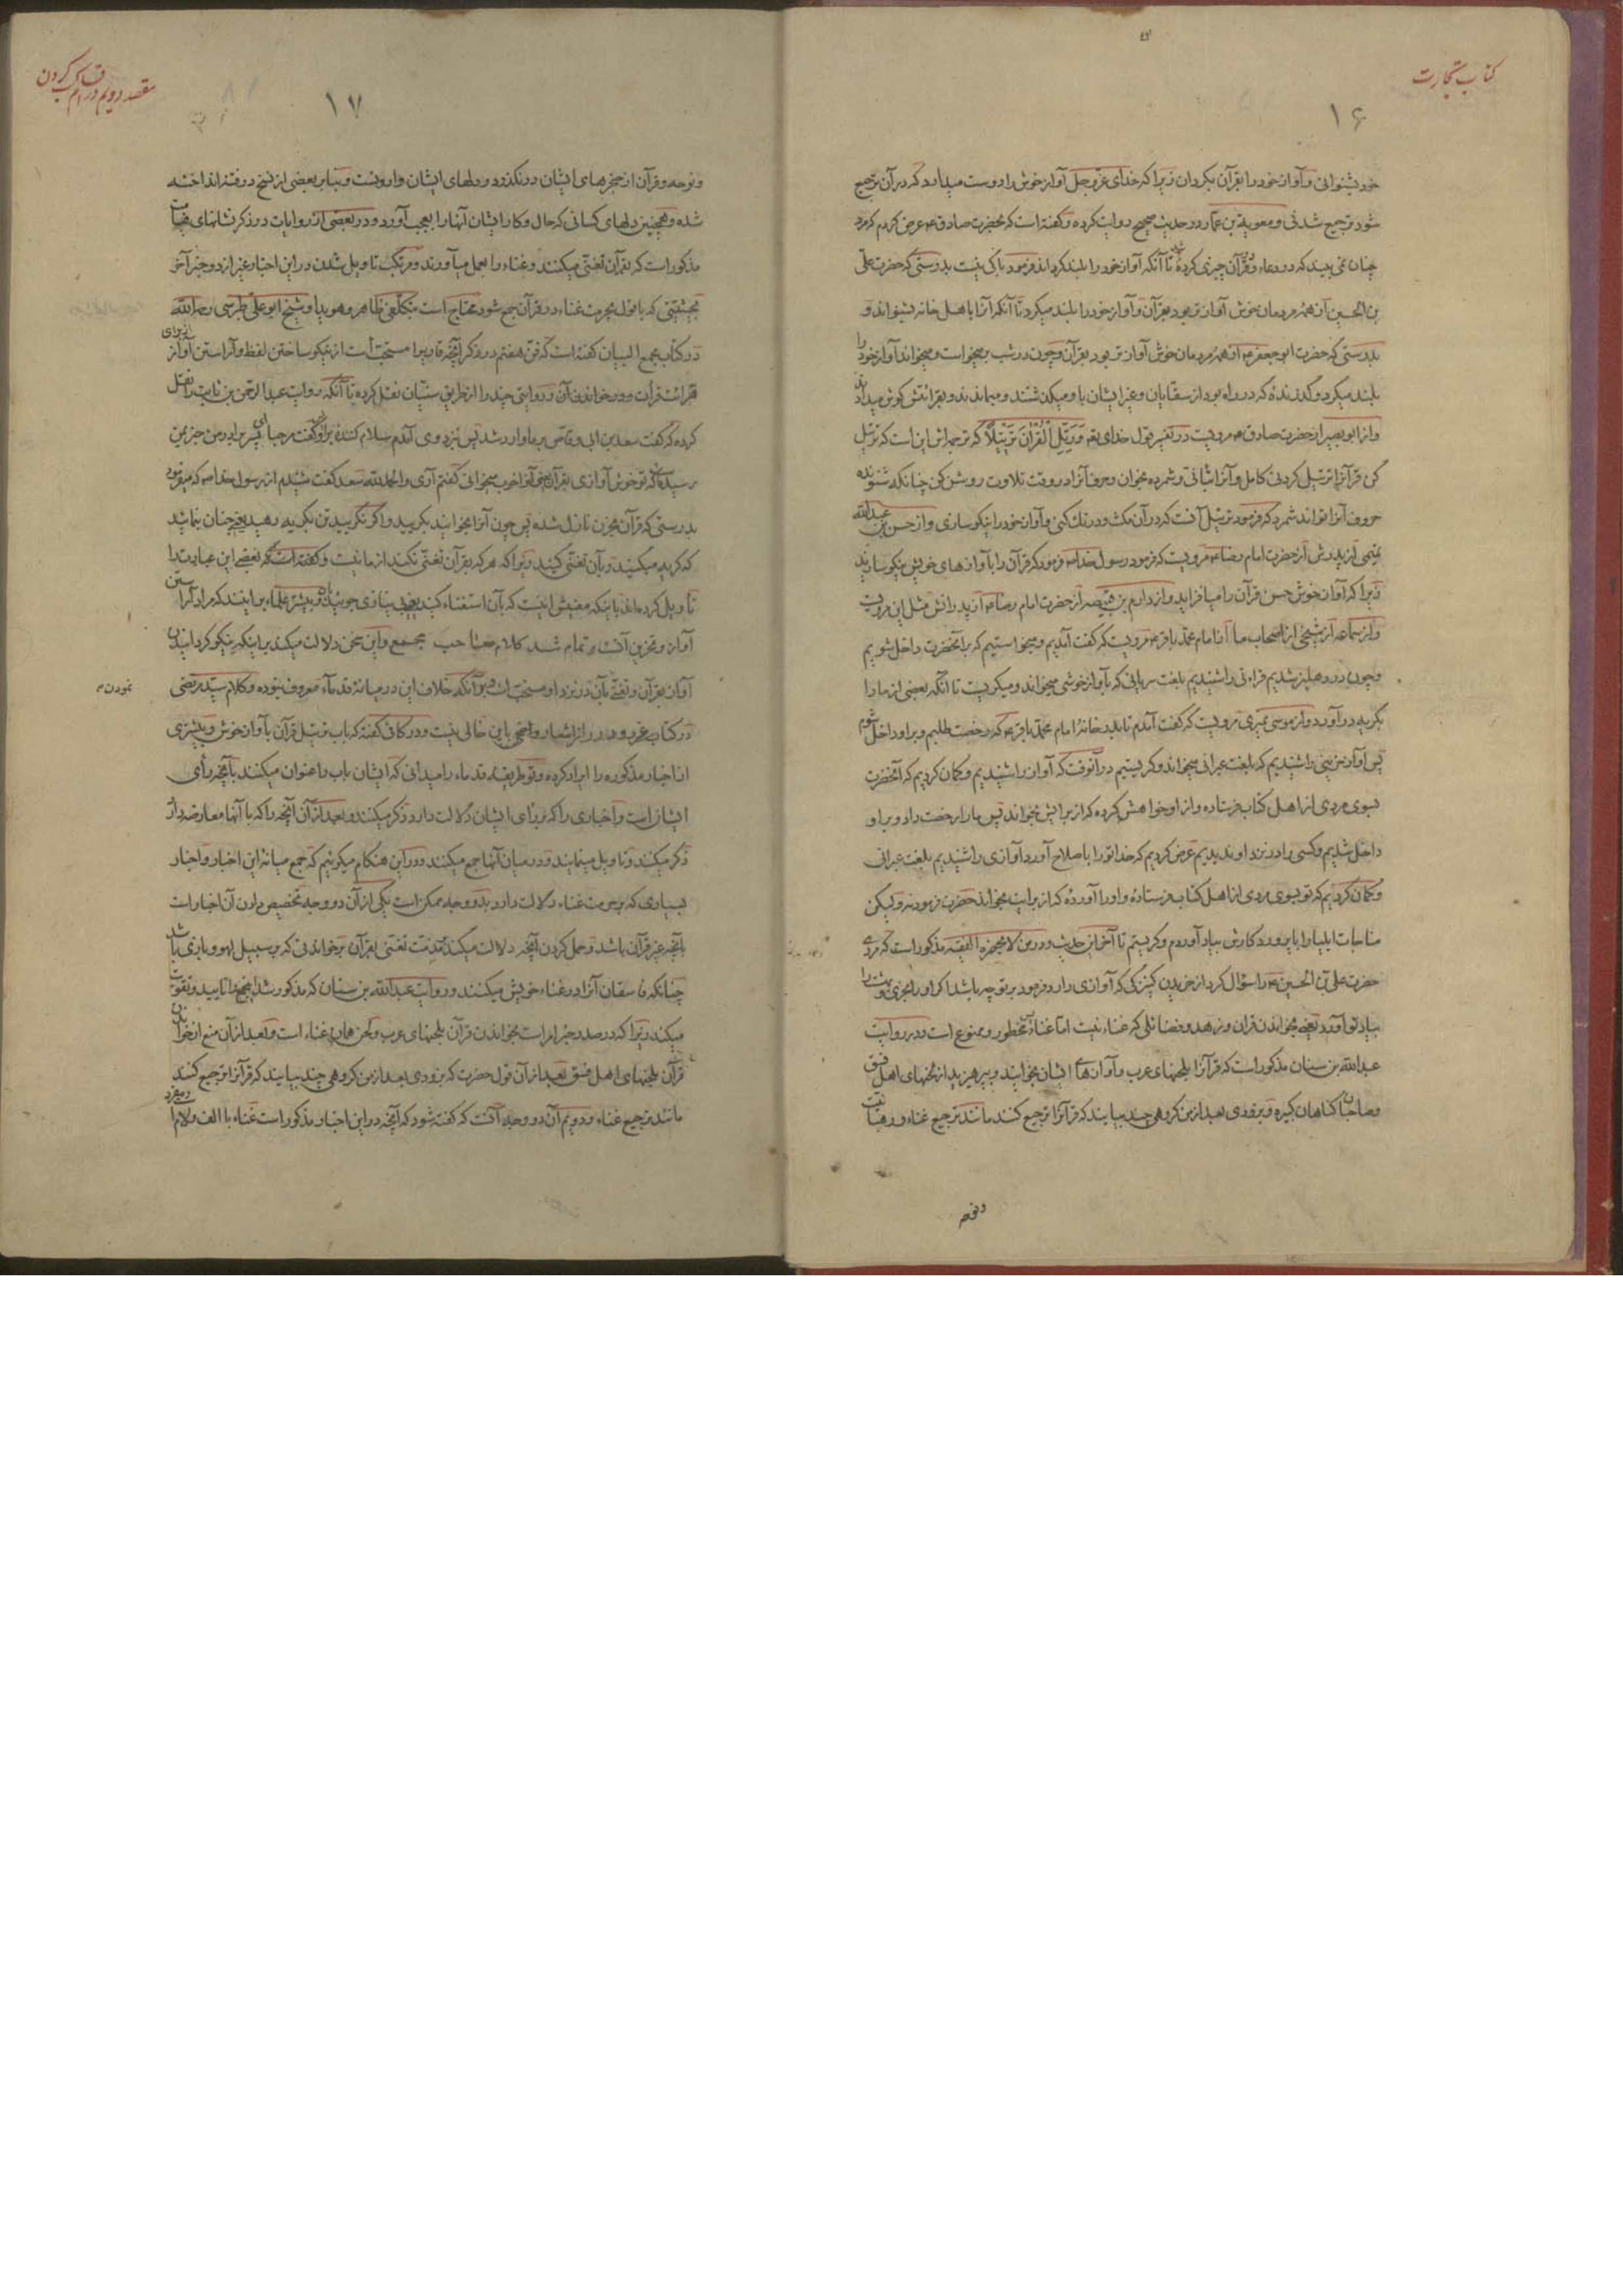 کتاب تجارت
۱۶
خود بشنوانی و آواز خود را بقرآن بگردان زیرا که خدای عزوجل آواز خوش را دوست میدارد که در آن ترجیع
شود ترجیع شدنی و معویة بن عمار در حدیث صحیح روایت کرده و گفته است که بحضرت صادق ع عرض کردم که مرد
چنان نمی بیند که در دعاء و قرآن چیزی کرده تا آنکه آواز خود را بلند کرداند فرمود باکی نیست بدرستی که حضرت علی
بن الحسین از همه مردمان خوش آواز تر بود بقرآن و آواز خود را بلند میکرد تا آنکه آنرا باهل خانه بشنواند و
بدرستی که حضرت ابو جعفر ع از همه مردمان خوش آواز تر بود بقرآن و چون در شب برمیخواست و میخواند آواز خود را
بلند میکرد و گذرنده که در راه بود از سقایان و غیر ایشان باو میگذشتند و میماندند و بقرائتش گوش میدادند
و از ابو بصیر از حضرت صادق ع مرویست در تفسیر قول خدای تعم وَرَتِّلِ الْقُرْآنَ تَرْتِيلًا که ترجمه اش این است که ترتیل
کن قرآنرا ترتیل کردنی کامل و آنرا بتأنی و شمرده بخوان و حروف آنرا در وقت تلاوت روشن کن چنانکه شنونده
حروف آنرا تواند شمرد که فرمود ترتیل آنست که در آن مکث و درنک کنی و آواز خود را نیکو سازی و از حسن بن عبدالله
تمیمی از پدرش از حضرت امام رضا ع مرویست که فرمود رسول خدا ص فرمود که قرآن را باوازهای خویش نیکو سازید
زیرا که آواز خوش حسن قرآن را میافزاید و از دارم بن قبیصه از حضرت امام رضا ع از پدرانش مثل این مرویست
و از سماعه از شیخی از اصحاب ما از امام محمد باقر ع مرویست که گفت آمدیم و میخواستیم که بر آنحضرت داخل شویم
و چون در دهلیز شدیم قراءتی را شنیدیم بلغت سریانی که باواز خوشی میخواند و میکریست تا آنکه بعضی از ما را
بگریه در آورد و از موسی نمیری مرویست که گفت آمدم تا بدر خانهٔ امام محمد باقر ع که رخصت طلبیم و بر او داخل شوم
پس آواز حزینی را شنیدیم که بلغت عبرانی میخواند و گریستیم در آنوقت که آواز را شنیدیم و گمان کردیم که آنحضرت
بسوی مردی از اهل کتاب فرستاده و از او خواهش کرده که از برایش بخواند پس ما را رخصت داد و بر او
داخل شدیم و کسی را در نزد او ندیدیم عرض کردیم که خدا تو را باصلاح آورد آوازی را شنیدیم بلغت عبرانی
و گمان کردیم که تو بسوی مردی از اهل کتاب فرستادهٔ و او را آوردهٔ که از برایت بخواند حضرت فرمود نه و لیکن
مناجات ایلیا را با پروردکارش بیاد آوردم و گریستم تا آخر این حدیث و در من لا یحضره الفقیه مذکور است که مردی
حضرت علی بن الحسین ع را سؤال کرد از خریدن کنیزکی که آوازی دارد فرمود بر تو چه باشد اگر او را بخری و بهشت را
بیاد تو آورد یعنی بخواندن قرآن و زهد و فضائلی که غناء نیست اما غناء محظور و ممنوع است و در روایت
عبدالله بن سنان مذکور است که قرآنرا بلحنهای عرب و آوازهای ایشان بخوانید و بپرهیزید از لحنهای اهل فسق
و صاحبان گناهان کبیره و بزودی بعد از من گروهی چند بیایند که قرآنرا ترجیع کنند مانند ترجیع غناء و رهبانیت
و نوحه
مقصد دویم در
۱۷
و نوحه و قرآن از حنجرهای ایشان در نگذرد و دلهای ایشان وارونست و بنابر بعضی از نسخ در فتنه انداخته
شده و همچنین دلهای کسانی که حال و کار ایشان آنها را بعجب آورد و در بعضی از روایات در ذکر نشانهای
مذکور است که بقرآن تغنی میکنند و غناء را بعمل میآورند و مرتکب تاویل شدن در این اخبار غیر از دو خبر آخر
بحیثیتی که با قول بحرمت غناء در قرآن جمع شود محتاج است بتکلفی ظاهر و هویدا و شیخ ابو علی طبرسی رحمه الله
در کتاب مجمع البیان گفته است که فن هفتم در ذکر آنچه قاریرا مستحب است از نیکو ساختن لفظ و آراستن آواز از برای
قرائت قرآت و در خواندن آن و روایتی چند را از طریق سنیان نقل کرده تا آنکه روایت عبدالرحمن بن سایب را نقل
کرده که گفت سعد بن ابی وقاص بر ما وارد شد پس نزد وی آمدم سلام کننده بر او گفت مرحبا ای پسر برادر من خبر بمن
رسیده که تو خوش آوازی بقرآن یعنی آنرا خوب میخوانی گفتم آری و الحمدلله سعد گفت شنیدم از رسول خدا ص که میفرمود
بدرستی که قرآن بحزن نازل شده پس چون آنرا بخوانید بگریید و اگر نگریید تن بگریه دهید یعنی چنان نمائید
که گریه میکنید و بآن تغنی کنید زیرا که هر که بقرآن تغنی نکند از ما نیست و گفته است که بعضی این عبارت را
تأویل کرده اند باینکه معنیش اینست که بآن استغناء کنید یعنی بی نیازی جوئید و بیشتر علماء بر اینند که مراد آراستن
آواز و تحزین آنست و تمام شد کلام صاحب مجمع و این سخن دلالت میکند بر اینکه نیکو گردانیدن
آواز بقرآن و تغنی بآن در نزد او مستحب است و بر آنکه خلاف این در میانهٔ قدماء معروف نبوده و کلام سید مرتضی
نمودن م
در کتاب غرر و درر از اشعار واضحی باین خالی نیست و در کافی گفته که باب ترتیل قرآن باواز خوش و بیشتری
از اخبار مذکوره را ایراد کرده و تو طریقهٔ قدماء را میدانی که ایشان باب را عنوان میکنند بانچه رأی
ایشان است و اخباری را که بر رأی ایشان دلالت دارد ذکر میکنند و بعد از آن آنچه را که با آنها معارضه دارد
ذکر میکنند و تاویل مینمایند و در میان آنها جمع میکنند و در این هنگام میگوئیم که جمع میانهٔ این اخبار و اخبار
بسیاری که بر حرمت غناء دلالت دارد بدو وجه ممکن است یکی از آن دو وجه تخصیص دادن آن اخبار است
بانچه غیر قرآن باشد و حمل کردن آنچه دلالت میکند بر مذمت تغنی بقرآن بر خواندنی که بر سبیل لهو و بازی باشد
چنانکه فاسقان آنرا در غناء خویش میکنند و روایت عبدالله بن سنان که مذکور شد اینجمع را تایید و تقویت
میکند زیرا که در صدر خبر امر است بخواندن قرآن بلحنهای عرب و لحن همان غناء است و بعد از آن منع از خواندن
قرآن بلحنهای اهل فسق بعد از آن قول حضرت که بزودی بعد از من گروهی چند بیایند که قرآنرا ترجیع کنند
مانند ترجیع غناء و دویم آن دو وجه آنست که گفته شود که آنچه در این اخبار مذکور است غناء با الف و لام